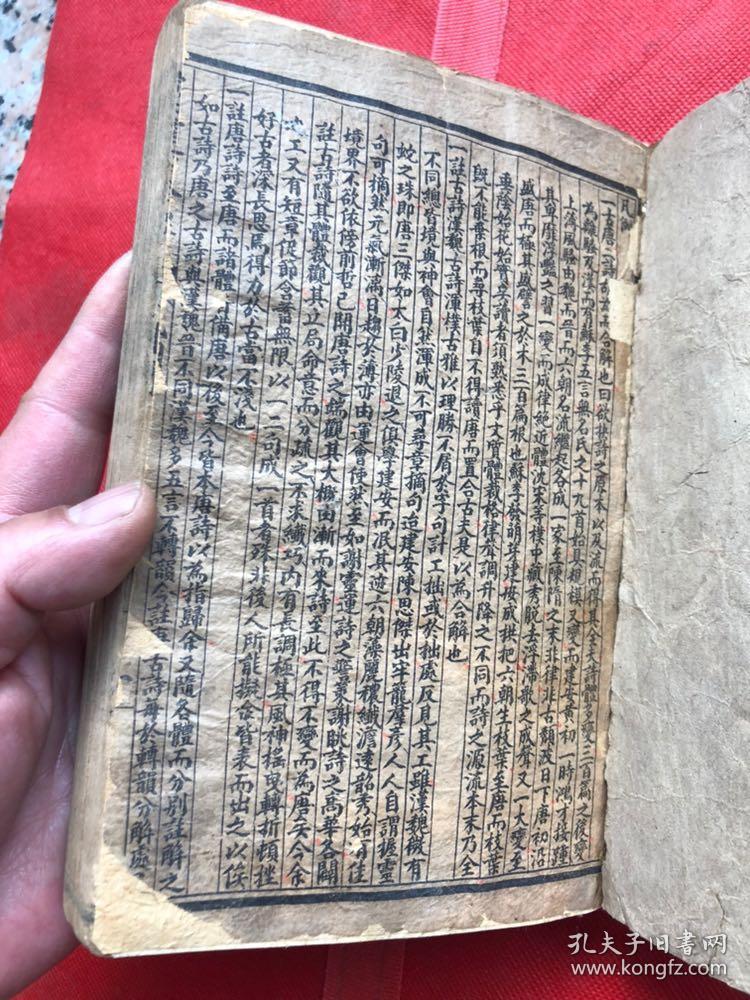 凡例
一古唐二詩何為而合解也曰欲使詩之原本以及流而得其全夫詩體多變三百篇之後變
為離騷及漢而有蘇李五言無名氏之十九首始具規模又變而建安黃初一時鴻才接踵
上薄風騷由魏而晉而六朝名流繼起各成一家至陳隋之末非律非古頹波日下唐初沿
其卑靡浮豔之習一變而成律絕近體沈宋華樸中藏秀脫去浮滯歌之成聲又一大變至
盛唐而極其盛譬之於木三百篇根也蘇李發萌芽建安成拱把六朝生枝葉至唐而枝葉
垂陰始花始實矣讀者須熟悉乎文質體裁格律聲調升降之不同而詩之源流本末乃全
既不能棄根而尋枝葉自不得讀唐而置合古夫是以為合解也
一註古詩漢魏古詩渾樸古雅以理勝不屑於字句計工拙或於拙處反見其工雖漢魏概有
不同總皆境與神會自然渾成不可尋章摘句迨建安陳思傑出牢籠羣彥人人自謂握靈
蛇之珠即唐三傑如太白少陵退之俱學建安而泯其迹六朝藻麗穠纖澹遠韶秀始有佳
句可摘然元氣漸漓日趨於薄亦由運會使然至如謝靈運詩之無景謝朓詩之高華各開
境界不欲依傍前哲已開唐詩之端觀其大概由漸而來詩至此不得不變而為唐矣今余
註古詩隨其體裁觀其立局命意而分疏之不求纖巧內有長調極其風神搖曳轉折頓挫
之工又有短章促節含蓄無限以一二句成一首者殊非後人所能擬余皆表而出之以俟
好古者深長思焉得力於古當不淺也
一註唐詩詩至唐而諸體皆備唐以後至今皆本唐詩以為指歸余又隨各體而分別註解之
如古詩乃唐之古詩與漢魏晉不同漢魏多五言不轉韻今註唐古詩每於轉韻分解處
孔夫子旧书网
www.kongfz.com